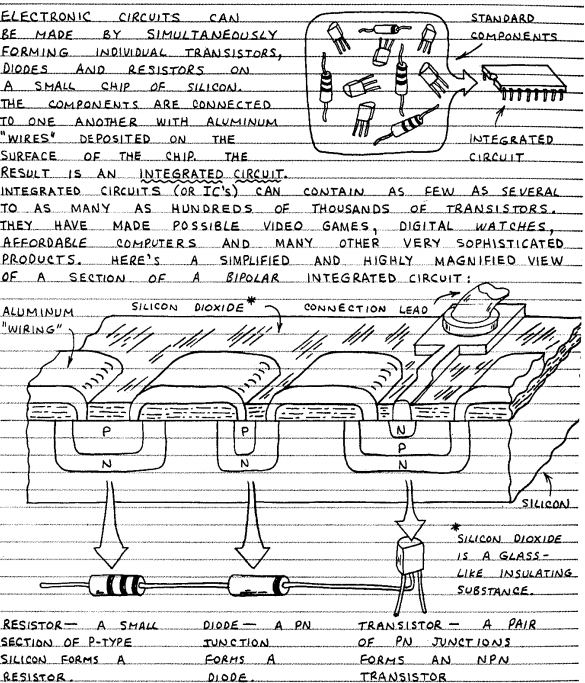 ELECTRONIC CIRCUITS CAN
BE MADE BY SIMULTANEOUSLY
FORMING INDIVIDUAL TRANSISTORS,
DIODES AND RESISTORS ON
A SMALL CHIP OF SILICON.
THE COMPONENTS ARE CONNECTED
TO ONE ANOTHER WITH ALUMINUM
"WIRES" DEPOSITED ON THE
SURFACE OF THE CHIP. THE
RESULT IS AN INTEGRATED CIRCUIT.
INTEGRATED CIRCUITS (OR IC'S) CAN CONTAIN AS FEW AS SEVERAL
TO AS MANY AS HUNDREDS OF THOUSANDS OF TRANSISTORS.
THEY HAVE MADE POSSIBLE VIDEO GAMES, DIGITAL WATCHES,
AFFORDABLE COMPUTERS AND MANY OTHER VERY SOPHISTICATED
PRODUCTS. HERE'S A SIMPLIFIED AND HIGHLY MAGNIFIED VIEW
OF A SECTION OF A BIPOLAR INTEGRATED CIRCUIT:
STANDARD
COMPONENTS
INTEGRATED
CIRCUIT
ALUMINUM
"WIRING"
SILICON DIOXIDE*
CONNECTION LEAD
P
N
P
N
N
P
N
SILICON
*SILICON DIOXIDE
IS A GLASS-
LIKE INSULATING
SUBSTANCE.
RESISTOR— A SMALL
SECTION OF P-TYPE
SILICON FORMS A
RESISTOR.
DIODE— A PN
JUNCTION
FORMS A
DIODE.
TRANSISTOR— A PAIR
OF PN JUNCTIONS
FORMS AN NPN
TRANSISTOR